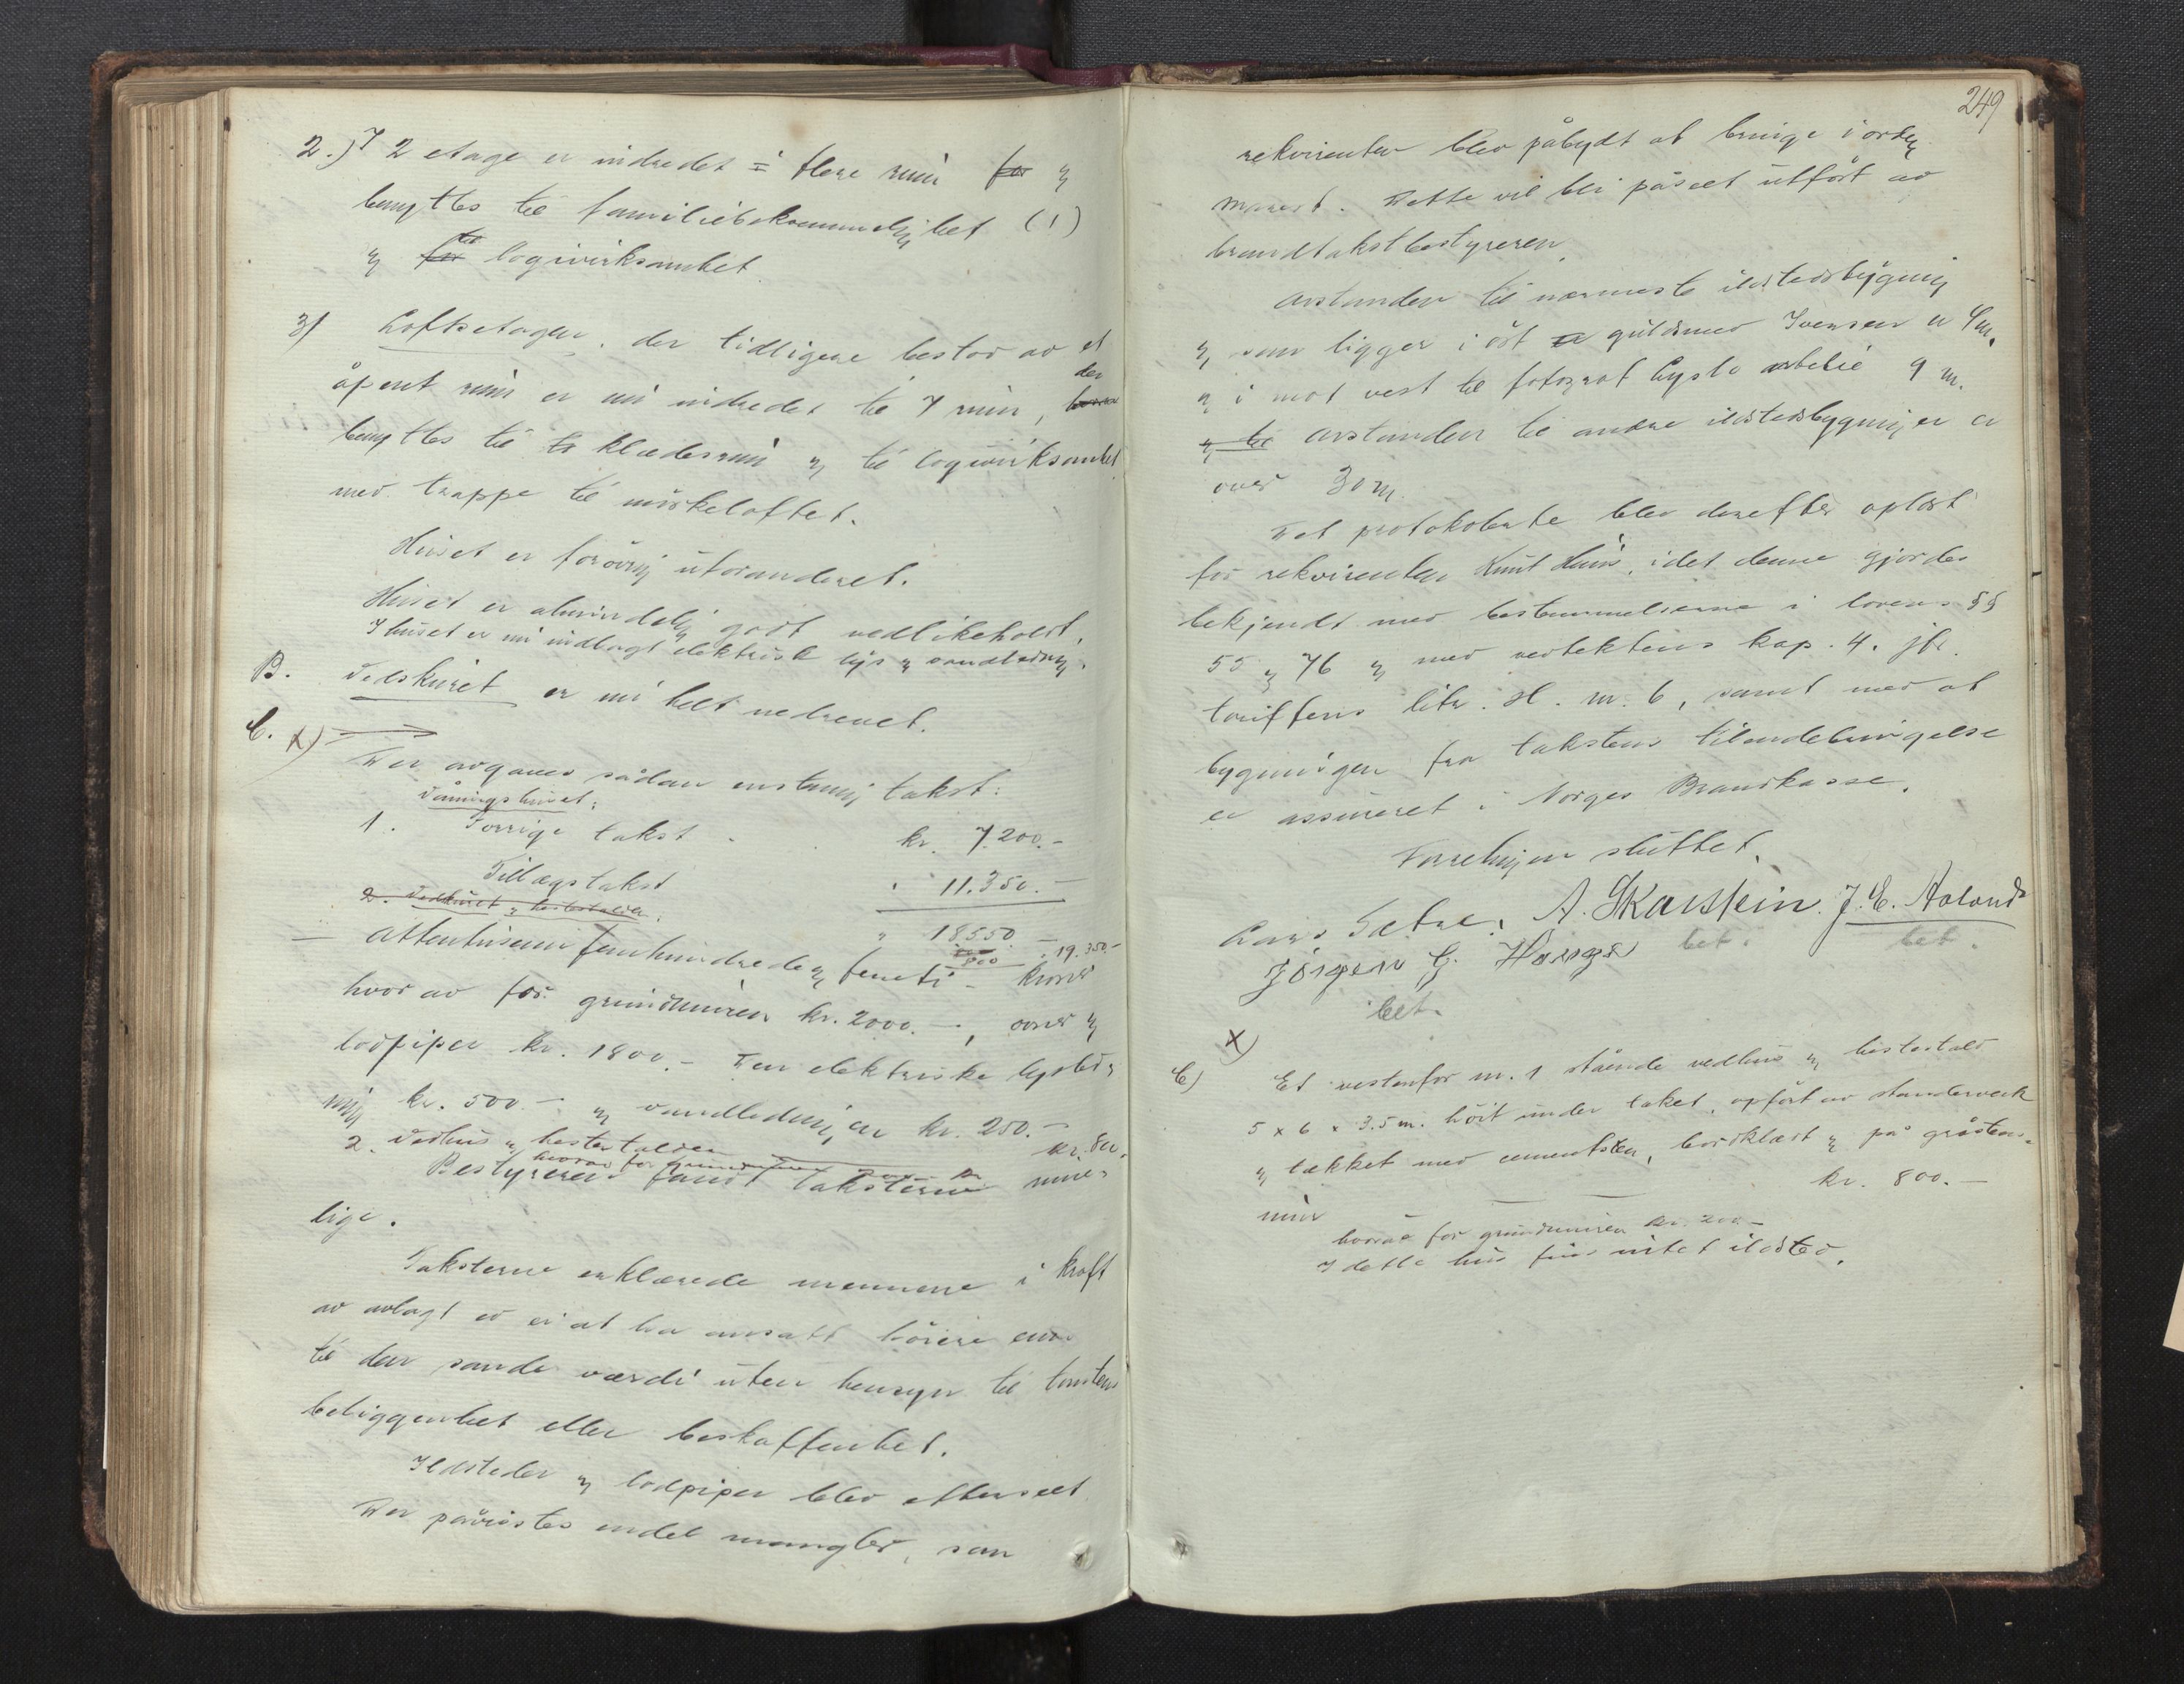 2.) I 2 etage er indredet i flere rum for og
benyttes til familiebekvemmelighet (1)
og for til logivirksomhet
3) Loftsetagen, der tidligere bestod av et
åpent rum er nu indredet til 7 rum, der
benyttes til klædesrum og til logivirksomhet
med trappe til mörkeloftet.
Huset er forövrig uforandret.
Huset er almindelig godt vedlikeholdt.
I huset er nu indlagt elektrisk lys og vandledning.
B. Vedskuret er nu helt nedrevet.
C. x)
Der avgaves sådan enstemmig takst:
Våningshuset:
1. Forrige takst kr. 7.200.-
Tillægstakst " 11.350.-
2. Vedskuret og hestestalden
" 18550.-
800 19.350-
- Attentusenfemhundredeogfemti - kroner
hvorav for grundmuren kr. 2000.-, ovner og
lodpiper kr. 1800.- Den elektriske lysled-
ning kr. 500.- og vandledningen kr. 250.-
2. Vedhus og hestestalden kr. 800.
hvorav for grundmuren 200 kr.
Bestyreren fandt taksterne rime-
lige.
Taksterne erklærede mennene i kraft
av avlagt ed ei at ha ansatt höiere end
til den sande værdi uten hensyn til tomtens
beliggenhet eller beskaffenhet.
Ildsteder og lodpiper blev efterseet
Der påvistes endel mangler, som
249
rekvirenten blev påbydt at bringe i orden
snarest. Dette vil bli påseet utfört av
brandtakstbestyreren.
Avstanden til nærmeste ildstedsbygning
og som ligger i öst er guldsmed Ivensen er 4 m.
og i mot vest til fotograf Gysle atelie 9 m.
og til avstanden til andre ildstedsbygninger er
over 30 m.
Det protokolerte blev derefter oplæst
for rekvirenten Knut Huus, idet denne gjordes
bekjendt med bestemmelserne i lovens §§
55 og 76 og med vedtektens kap. 4. jfr.
tariffens litr. H. nr. 6, samt med at
bygningen fra takstens tilendebringelse
er assureret i Norges Brandkasse.
Forretningen sluttet.
Lars Sætre. A. Skarstein. J. E. Aaland
Jörgen G. Hauge bet. bet.
bet.
x)
C) Et vestenfor nr. 1 stående vedhus og hestestald
5 x 6 x 3.5 m. höit under taket, opfört av standerverk
og tækket med cementsten, bordklædt og på gråstens-
mur kr. 800.-
hvorav for grundmuren kr. 200.-
I dette hus fins intet ildsted.